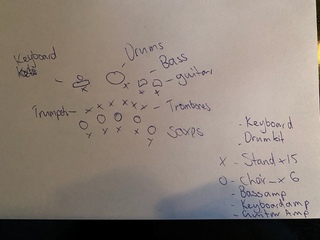 Keyboard
Drums
Bass
guitar
Trumpets
Trombones
Saxes
- Keyboard
- Drumkit
x - Stand x15
o - Chair - x 6
- Bass amp
- Keyboard amp
- Guitar Amp